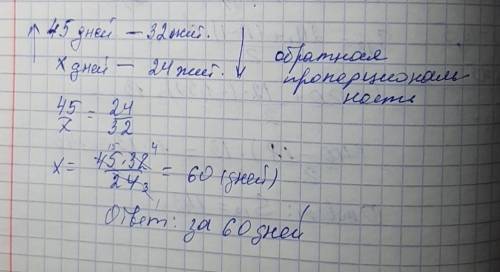 45 дней — 32 жит.
x дней — 24 жит.
обратная
пропорционал ь
ность
45/x = 24/32
x = 45·32/24 = 60 (дней)
15 4 3
Ответ: за 60 дней